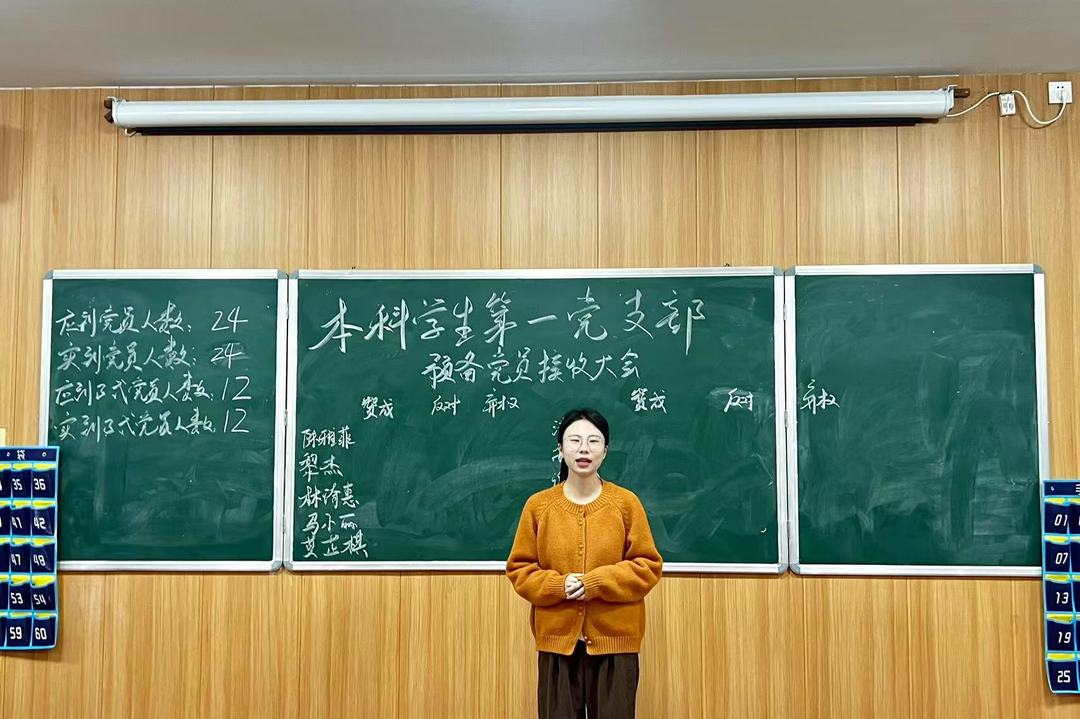 应到党员人数：24
实到党员人数：24
应到正式党员人数：12
实到正式党员人数：12
本科学生第一党支部
预备党员接收大会
赞成 反对 弃权 赞成 反对 弃权
陈翔菲
黎杰
林渝惠
马小丽
莫芷棋
35 36
41 42
47 48
53 54
59 60
01
07
13
19
25